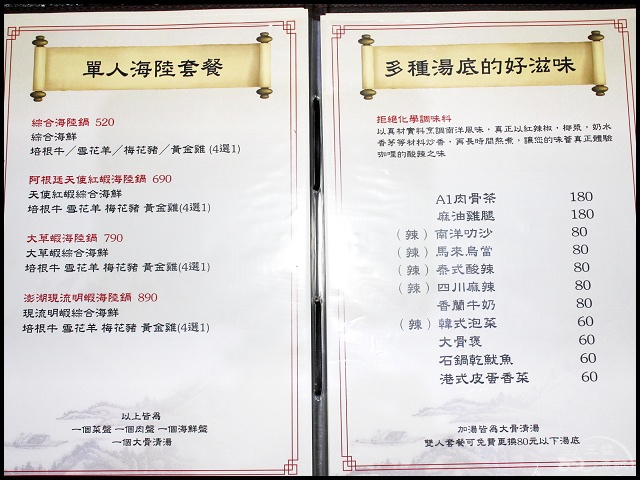 單人海陸套餐
綜合海陸鍋 520
綜合海鮮
培根牛/雪花羊/梅花豬/黃金雞(4選1)
阿根廷天使紅蝦海陸鍋 690
天使紅蝦綜合海鮮
培根牛 雪花羊 梅花豬 黃金雞(4選1)
大草蝦海陸鍋 790
大草蝦綜合海鮮
培根牛 雪花羊 梅花豬 黃金雞(4選1)
澎湖現流明蝦海陸鍋 890
現流明蝦綜合海鮮
培根牛 雪花羊 梅花豬 黃金雞(4選1)
以上皆為
一個菜盤 一個肉盤 一個海鮮盤
一個大骨清湯
多種湯底的好滋味
拒絕化學調味料
以真材實料烹調南洋風味,真正以紅辣椒,椰漿,奶水
香茅等材料炒香,再長時間熬煮,讓您的味蕾真正體驗
咖哩的酸辣之味
A1肉骨茶 180
麻油雞腿 180
(辣)南洋叻沙 80
(辣)馬來烏當 80
(辣)泰式酸辣 80
(辣)四川麻辣 80
香蘭牛奶 80
(辣)韓式泡菜 60
大骨煲 60
石鍋乾魷魚 60
港式皮蛋香菜 60
加湯皆為大骨清湯
雙人套餐可免費更換80元以下湯底